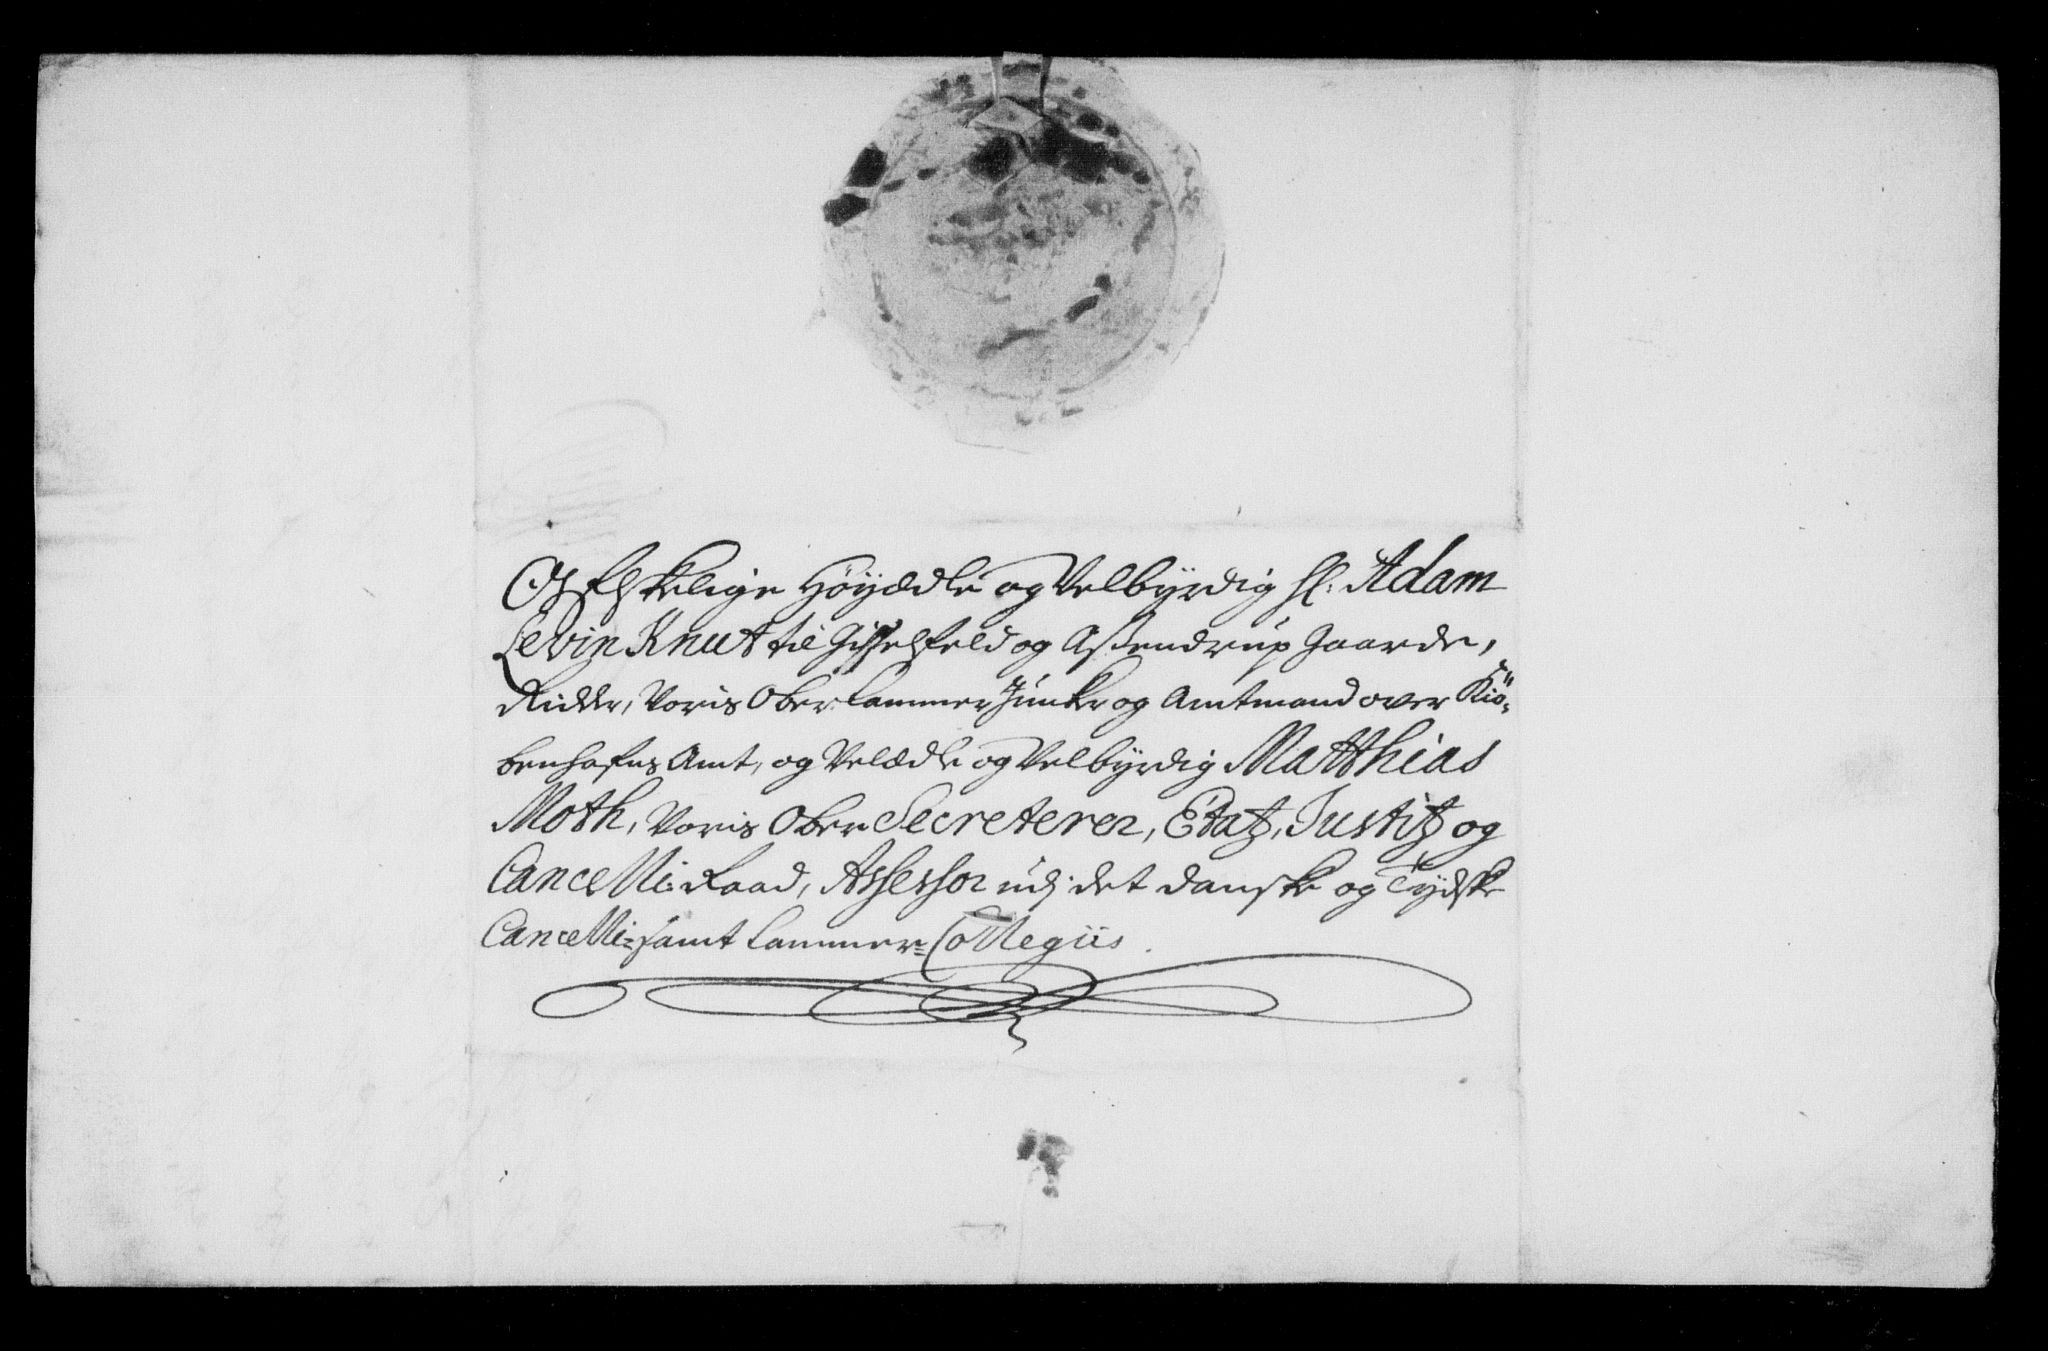 Os Elskelige Höyædle og Velbyrdig Hr: Adam
Levin Knut til Gisselfeld og Assendrup Gaarde,
Ridder, Voris Ober Cammer Junker og Amtmand over Kiö-
benhafns Amt, og Velædle og Velbyrdig Matthias
Moth, Voris Ober Secreterer, Etatz, Justitz og
Cancelli Raad, Assessor udj det danske og Tydske
Cancelli- samt Cammer-Collegiis.